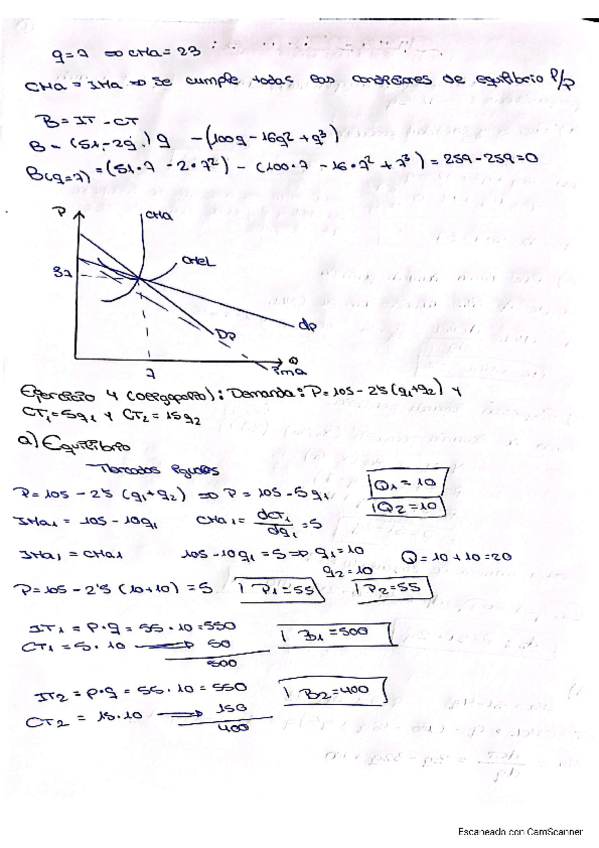 q=7 ⇒ CMa = 23
CMa = IMa ⇒ Se cumple todas las condiciones de equilibrio P/p
B = IT - CT
B = (51-2q) q - (100q - 16q² + q³)
B(q=7) = (51·7 - 2·7²) - (100·7 - 16·7² + 7³) = 259 - 259 = 0
P
CMa
37
CMeL
dp
DP
Q
IMa
7
Ejercicio 4 (Oligopolio): Demanda: P = 105 - 2'5 (q1+q2) y
CT1 = 5q1 y CT2 = 15q2
a) Equilibrio
Mercados iguales
P = 105 - 2'5 (q1+q2) ⇒ P = 105 - 5q1
Q1 = 10
Q2 = 10
IMa1 = 105 - 10q1 CMa1 = dCT1/dq1 = 5
IMa1 = CMa1 105 - 10q1 = 5 ⇒ q1 = 10 Q = 10 + 10 = 20
q2 = 10
P = 105 - 2'5 (10+10) = 5 P1 = 55 P2 = 55
IT1 = P·q = 55·10 = 550
CT1 = 5·10 → 50 B1 = 500
500
IT2 = P·q = 55·10 = 550 B2 = 400
CT2 = 15·10 → 150
400
Escaneado con CamScanner